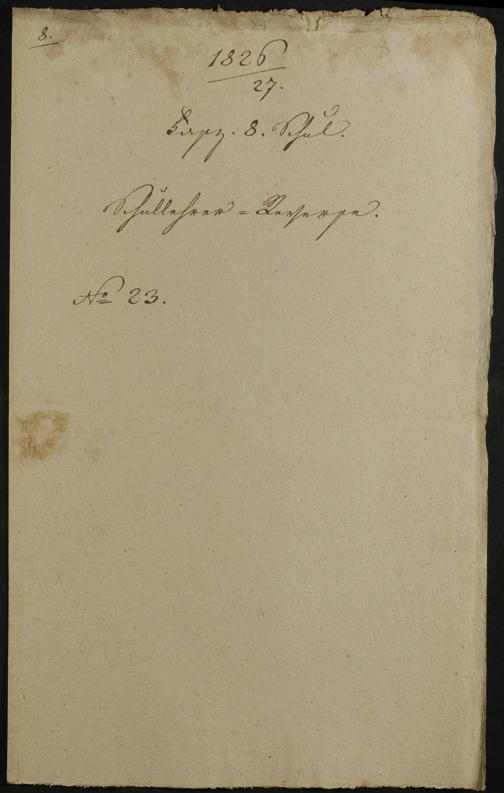 8.
1826
27.
Fasz. 8. Schul.
Schullehrer = Reverse.
No 23.